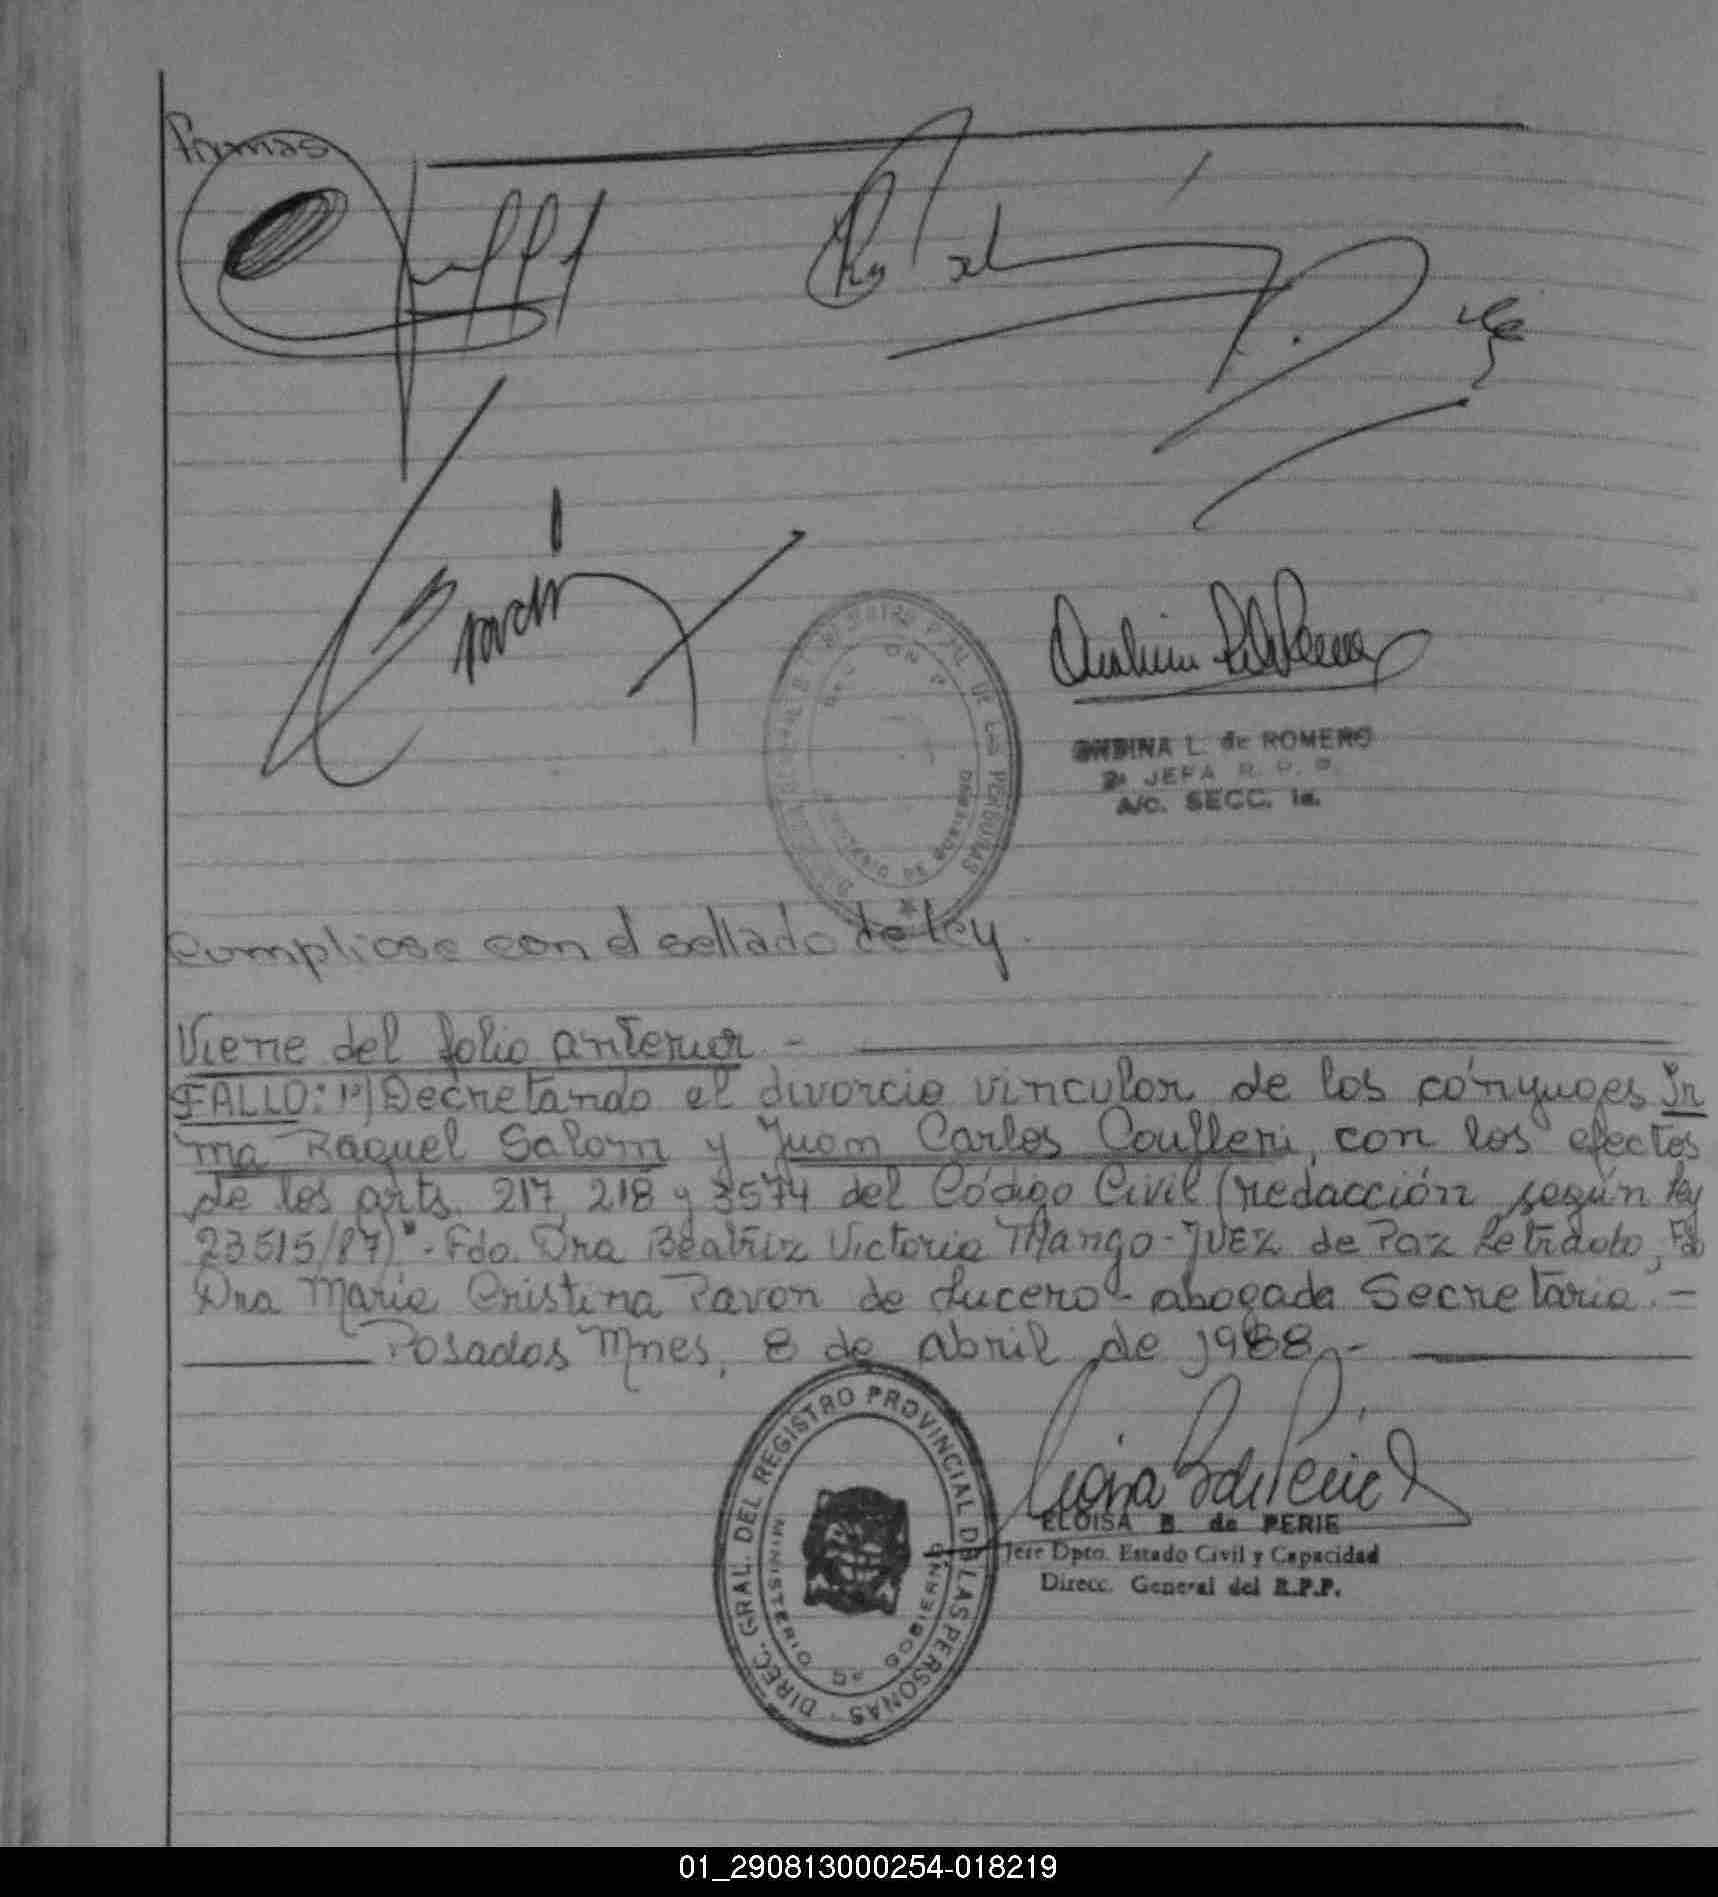 Firmas
ONDINA L. de ROMERO
2a JEFA R. P. P.
A/C. SECC. 1a.
Cumpliose con el sellado de ley.
Viene del folio anterior -
FALLO: 1º) Decretando el divorcio vincular de los cónyuges Ir
ma Raquel Salom y Juan Carlos Coufleri, con los efectos
de los arts. 217, 218 y 3574 del Código Civil (redacción según ley
23515/87)". Fdo. Dra Beatriz Victoria Mango - Juez de Paz Letrado, Fdo
Dra María Cristina Pavon de Lucero - abogada Secretaria. -
Posadas Mnes, 8 de abril de 1988. -
DIREC. GRAL. DEL REGISTRO PROVINCIAL DE LAS PERSONAS
MINISTERIO DE GOBIERNO
ELOISA B. de PERIE
Jefe Dpto. Estado Civil y Capacidad
Direcc. General del R.P.P.
01_290813000254-018219